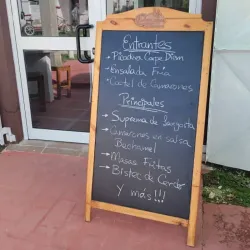 Entrantes
Picadera Carpe Diem
Ensalada Fría
Coctel de Camarones
Principales
Suprema de Langosta
Camarones en salsa
Bechamel
Masas Fritas
Bistec de Cerdo
Y más!!!